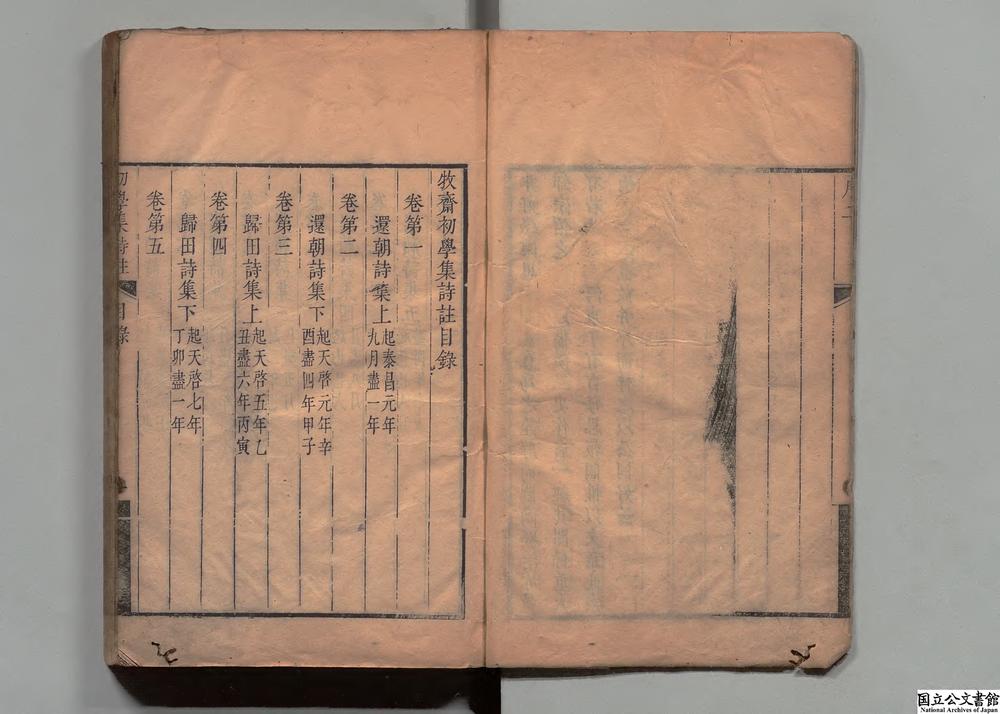 牧齋初學集詩註目錄
卷第一
還朝詩集上 起泰昌元年九月盡一年
卷第二
還朝詩集下 起天啓元年辛酉盡四年甲子
卷第三
歸田詩集上 起天啓五年乙丑盡六年丙寅
卷第四
歸田詩集下 起天啓七年丁卯盡一年
卷第五
初學集詩註 目錄
国立公文書館
National Archives of Japan